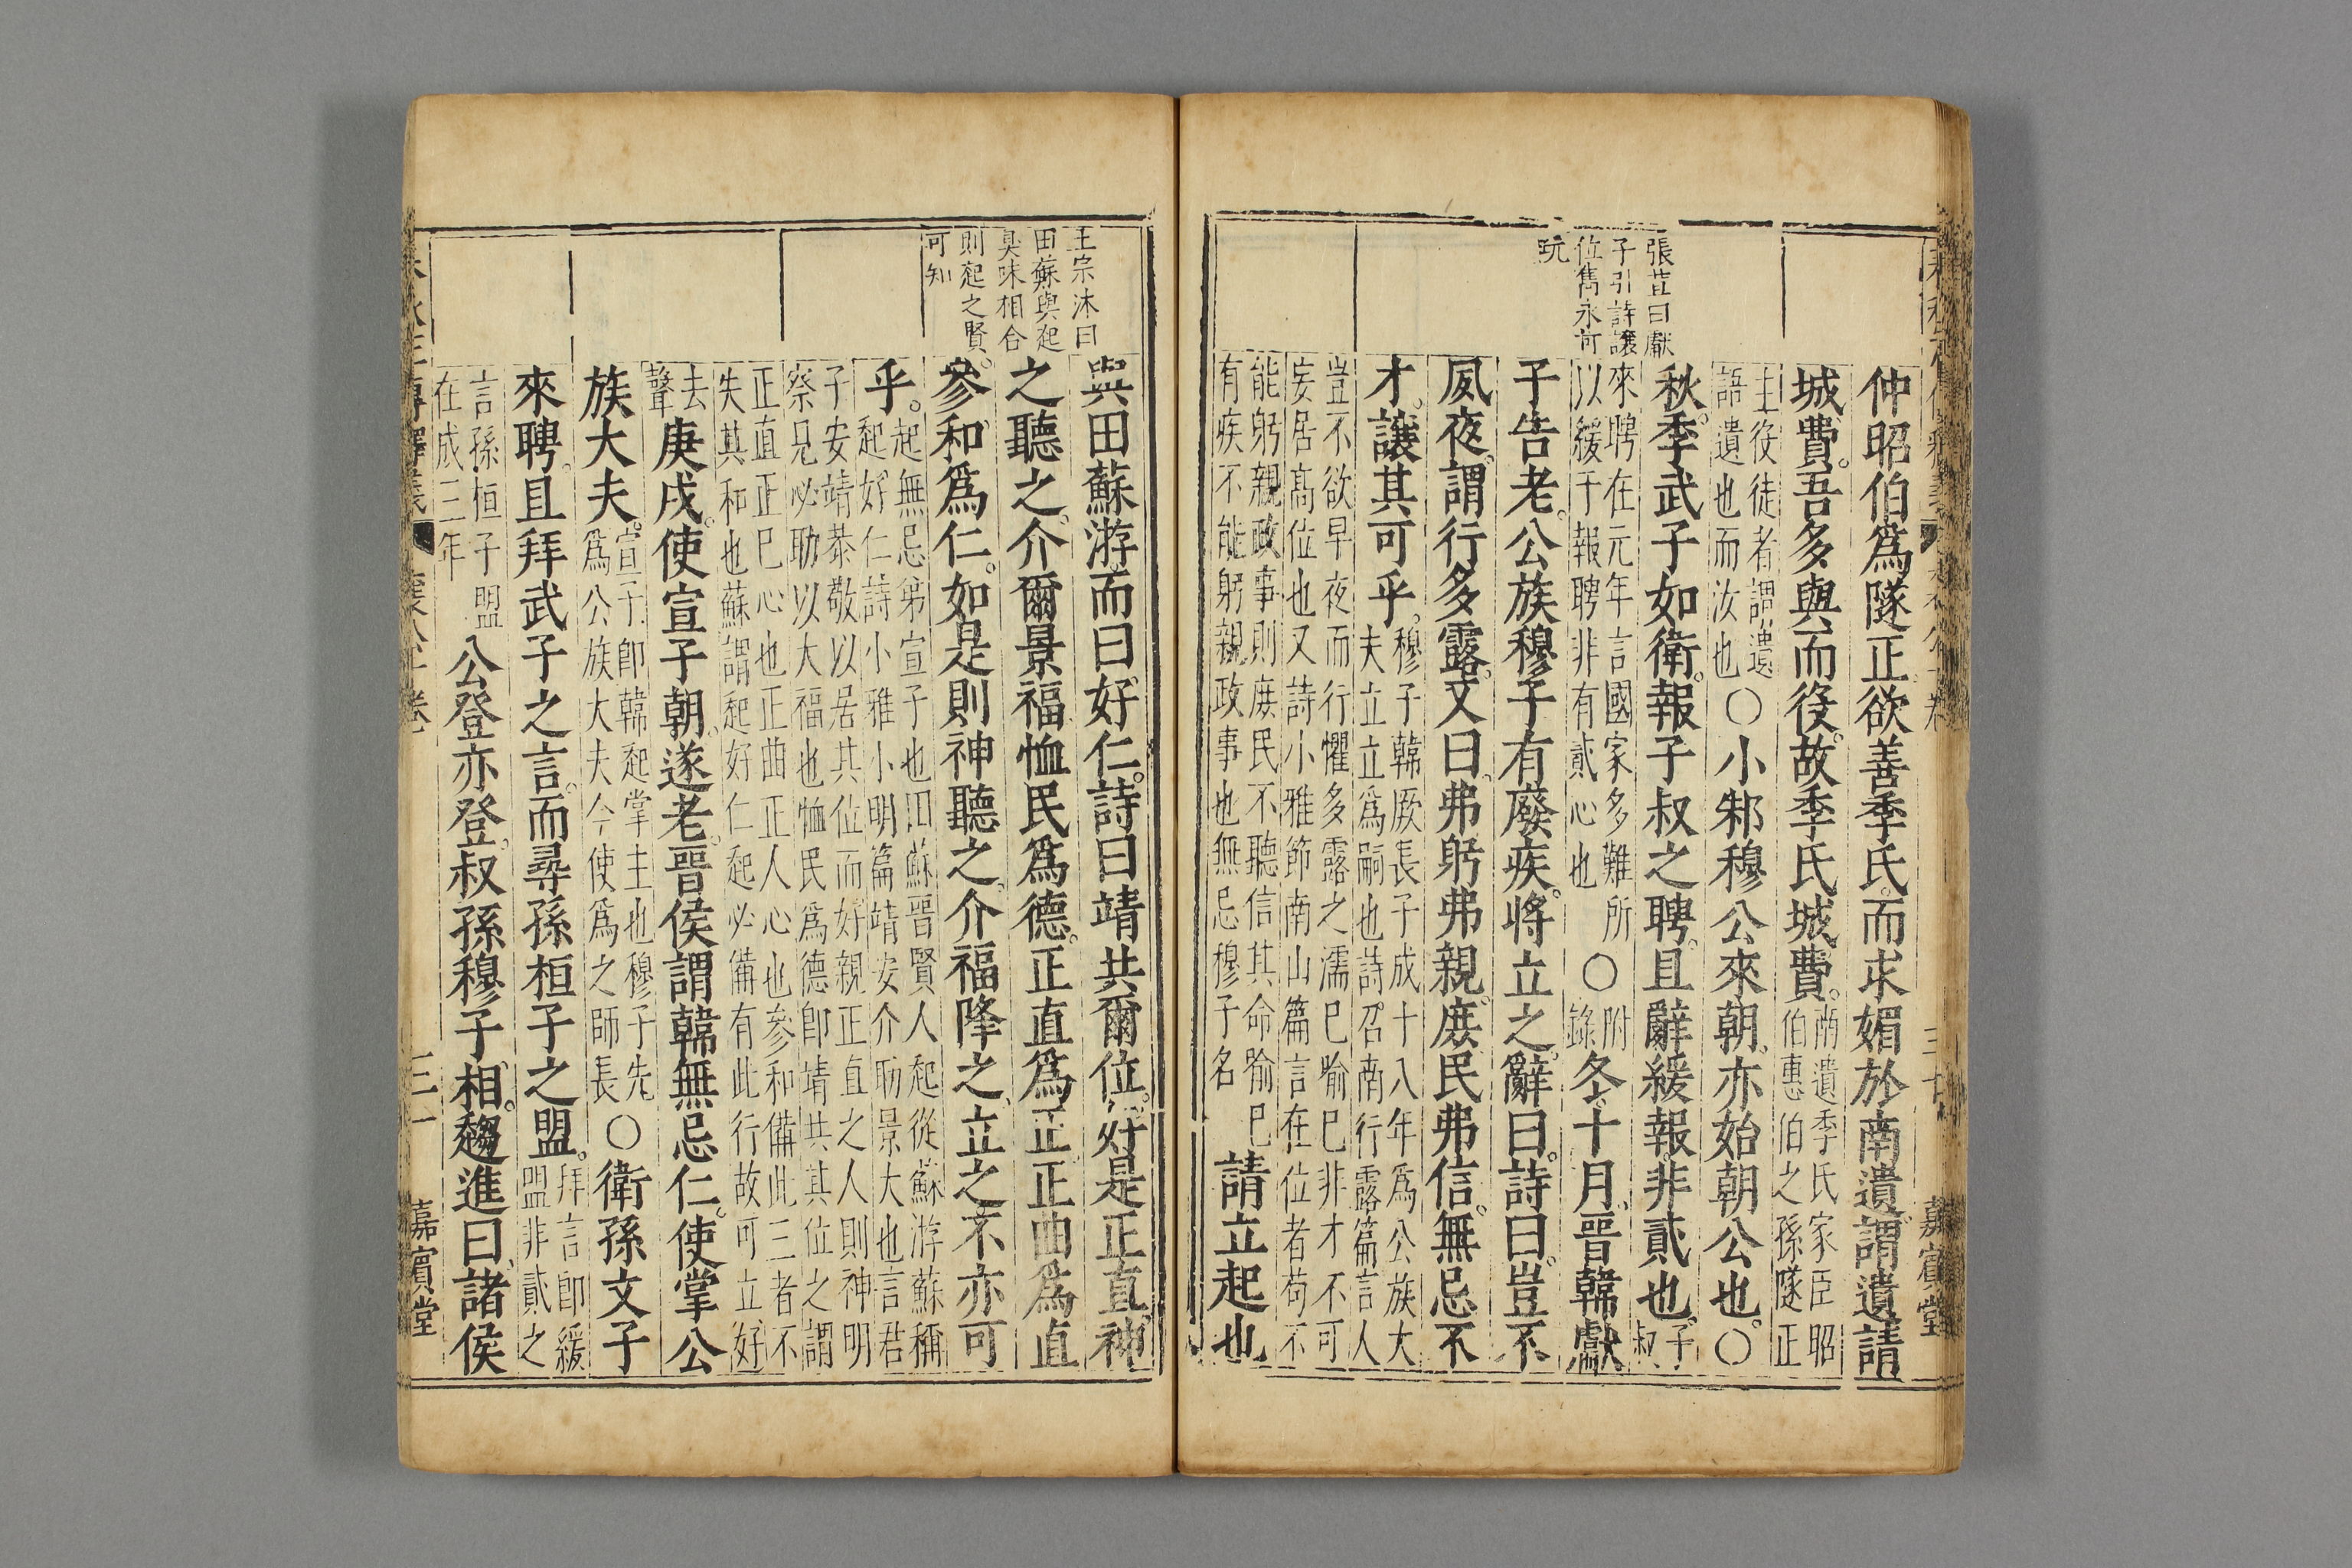 張芷曰獻
子引詩讓
位雋永可
玩
仲昭伯爲隧正欲善季氏而求媚於南遺謂遺請
城費吾多與而役故季氏城費南遺季氏家臣昭伯惠伯之孫隧正
主役徒者謂遺語遺也而汝也○小邾穆公來朝亦始朝公也○
秋季武子如衛報子叔之聘且辭緩報非貳也子叔
來聘在元年言國家多難所以緩于報聘非有貳心也○附錄冬十月晉韓獻
子告老公族穆子有廢疾將立之辭曰詩曰豈不
夙夜謂行多露又曰弗躬弗親庶民弗信無忌不
才讓其可乎穆子韓厥長子成十八年爲公族大夫立立爲嗣也詩召南行露篇言人
豈不欲早夜而行懼多露之濡巳喻巳非才不可妄居高位也又詩小雅節南山篇言在位者苟不
能躬親政事則庶民不聽信其命喻巳有疾不能躬親政事也無忌穆子名請立起也
王宗沐曰
田蘇與起
臭味相合
則起之賢
可知
與田蘇游而曰好仁詩曰靖共爾位好是正直神
之聽之介爾景福恤民爲德正直爲正正曲爲直
參和爲仁如是則神聽之介福降之立之不亦可
乎起無忌弟宣子也田蘇晉賢人起從蘇游蘇稱起好仁詩小雅小明篇靖安介助景大也言君
子安靖恭敬以居其位而好親正直之人則神明察見必助以大福也恤民爲德卽靖共其位之謂
正直正巳心也正曲正人心也參和備此三者不失其和也蘇謂起好仁起必備有此行故可立好
去聲庚戌使宣子朝遂老晉侯謂韓無忌仁使掌公
族大夫宣子卽韓起掌主也穆子先爲公族大夫今使爲之師長○衛孫文子
來聘且拜武子之言而尋孫桓子之盟拜言卽緩盟非貳之
言孫桓子盟在成三年公登亦登叔孫穆子相趨進曰諸侯
三一
嘉賓堂
嘉賓堂